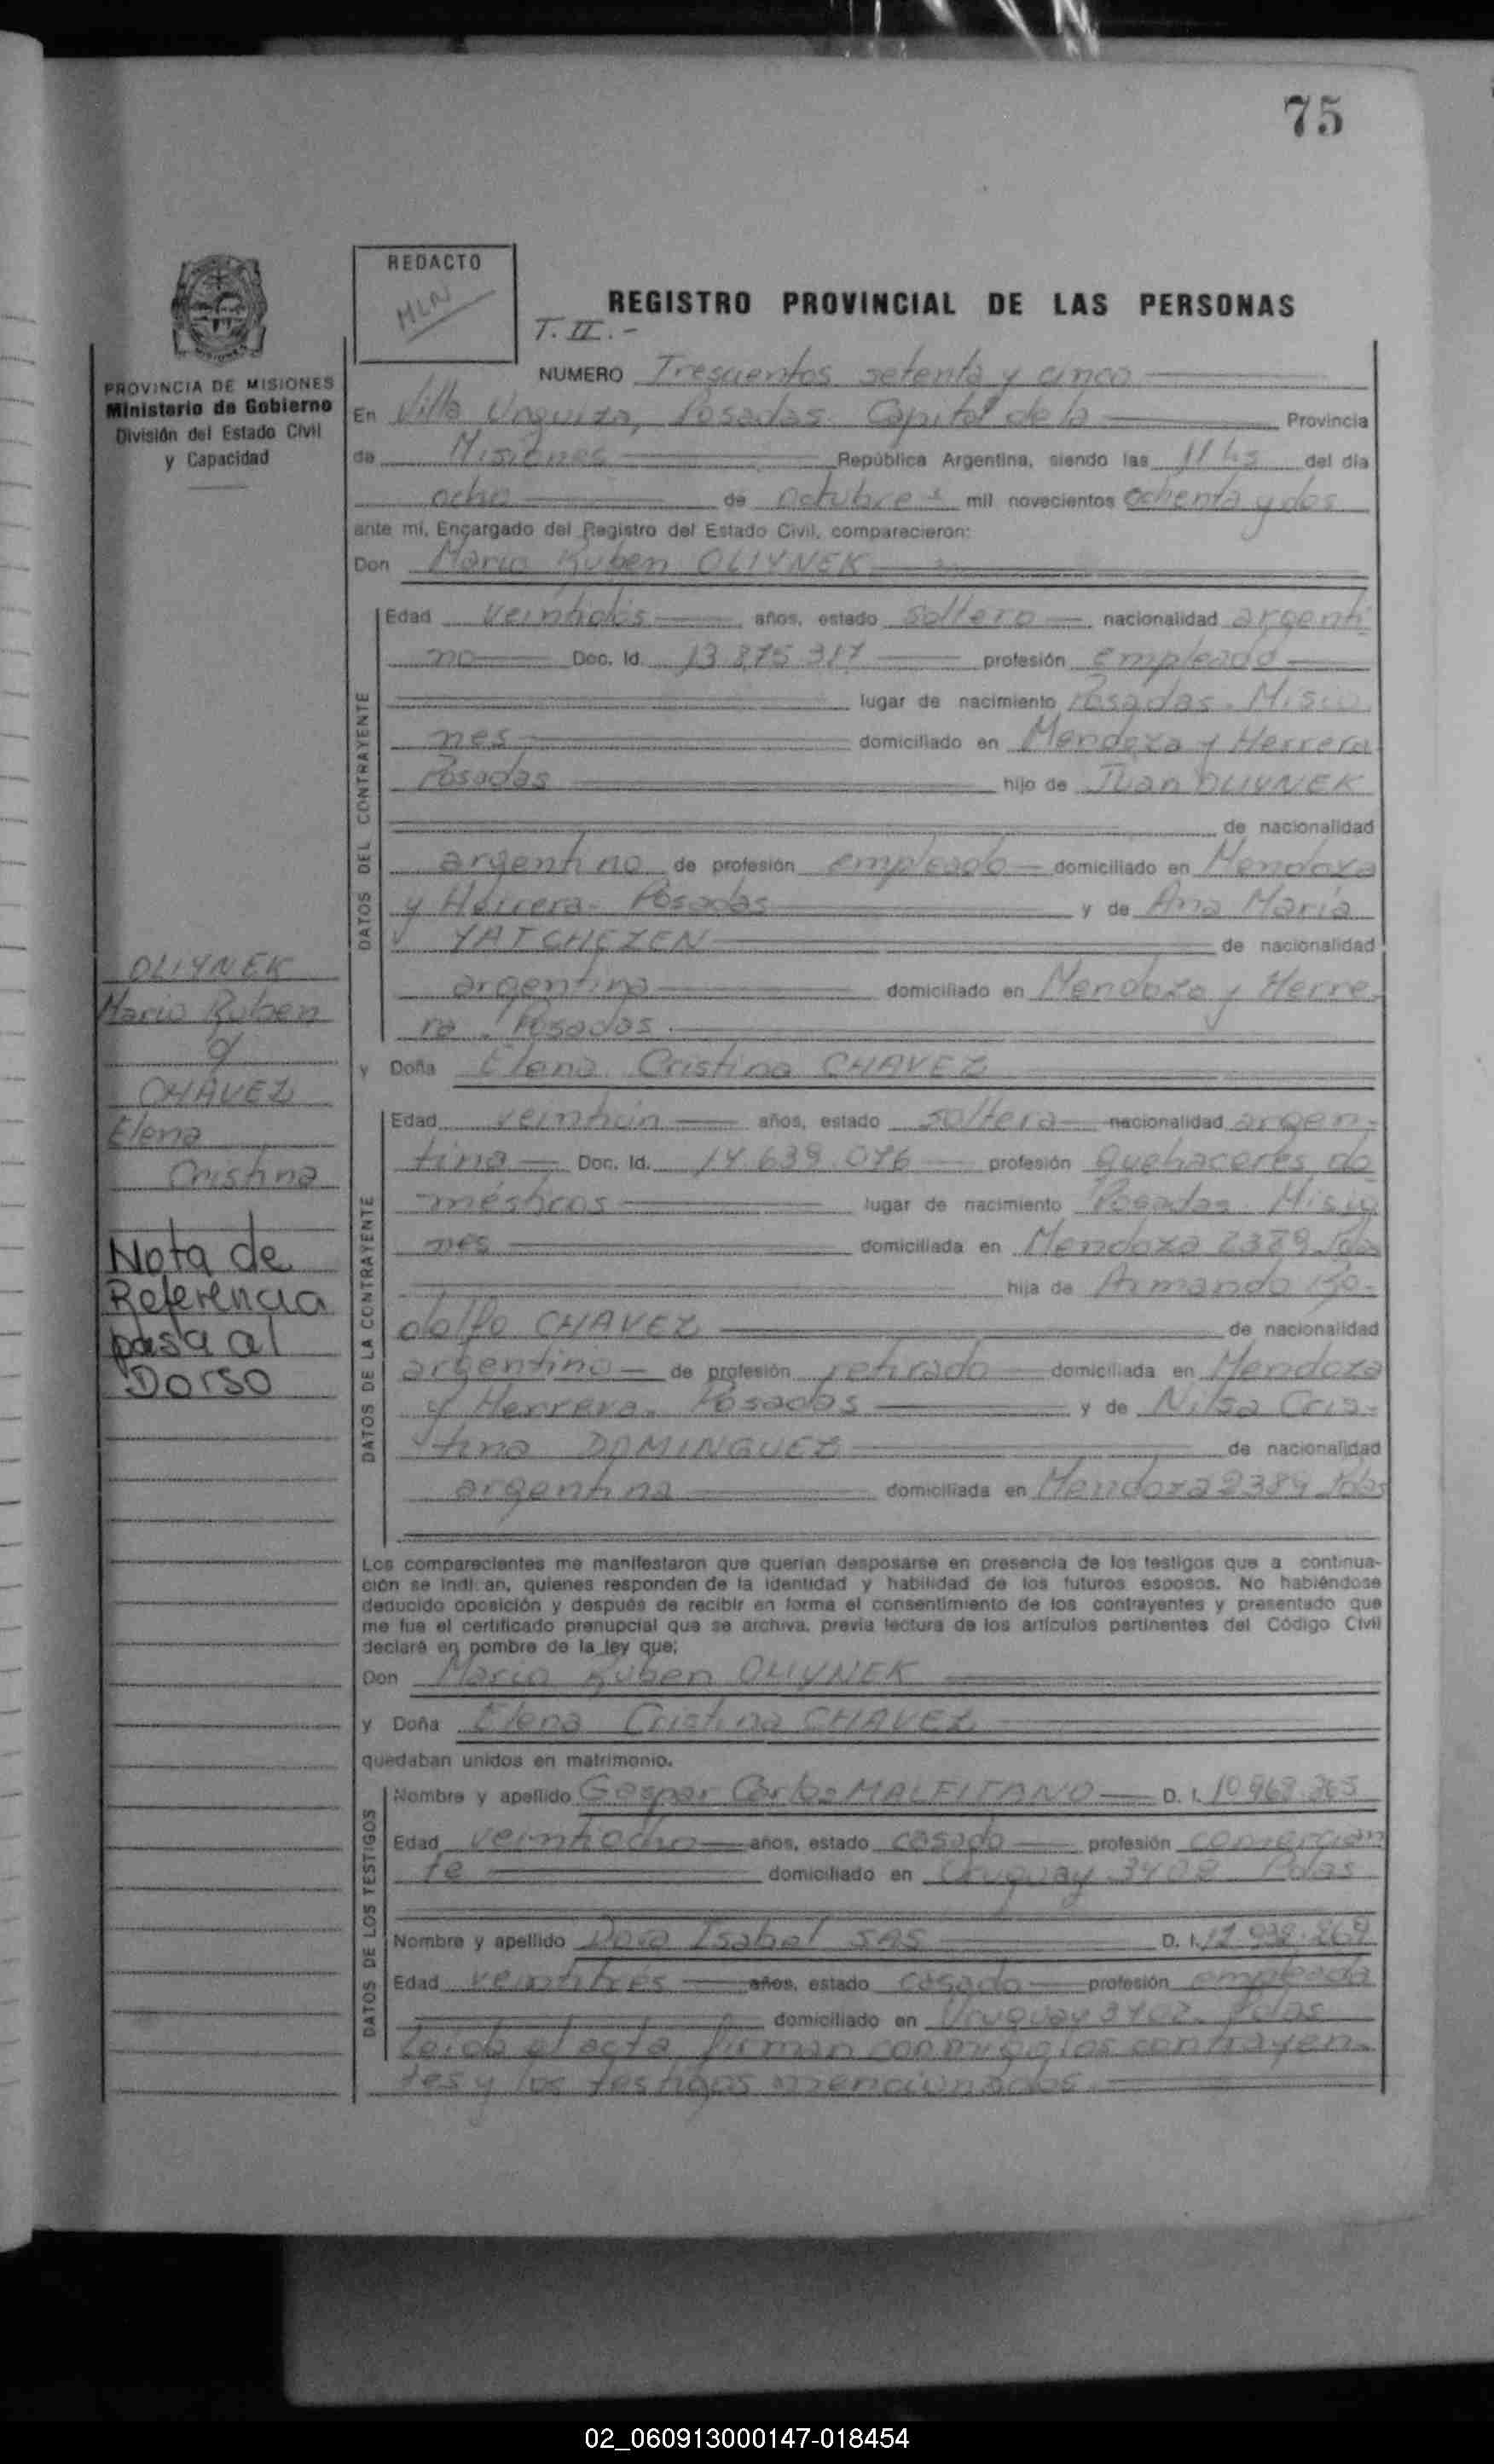 75
REDACTO
MLN
REGISTRO PROVINCIAL DE LAS PERSONAS
T. II.-
PROVINCIA DE MISIONES
Ministerio de Gobierno
División del Estado Civil
y Capacidad
NUMERO Trescientos setenta y cinco
En Villa Urquiza, Posadas. Capital de la Provincia
de Misiones República Argentina, siendo las 11 hs del día
ocho de octubre mil novecientos ochenta y dos
ante mi, Encargado del Registro del Estado Civil, comparecieron:
Don Mario Ruben OLIYNEK
DATOS DEL CONTRAYENTE
Edad veintidós años, estado soltero nacionalidad argenti
no Doc. Id. 13.875.317 profesión empleado
lugar de nacimiento Posadas. Misio
nes domiciliado en Mendoza y Herrera
Posadas hijo de Juan OLIYNEK
de nacionalidad
argentino de profesión empleado domiciliado en Mendoza
y Herrera. Posadas y de Ana María
YATCHEZEN de nacionalidad
argentina domiciliado en Mendoza y Herre-
ra. Posadas.
y Doña Elena Cristina CHAVEZ
OLIYNEK
Mario Ruben
c/
CHAVEZ
Elena
Cristina
Nota de
Referencia
pasa al
Dorso
DATOS DE LA CONTRAYENTE
Edad veintiún años, estado soltera nacionalidad argen-
tina Doc. Id. 14.639.076 profesión Quehaceres do
mésticos lugar de nacimiento Posadas. Misio
nes domiciliada en Mendoza 2389 Pdas
hija de Armando Ro-
dolfo CHAVEZ de nacionalidad
argentino de profesión retirado domiciliada en Mendoza
y Herrera. Posadas y de Nilsa Cris-
tina DOMINGUEZ de nacionalidad
argentina domiciliada en Mendoza 2389 Pdas
Los comparecientes me manifestaron que querían desposarse en presencia de los testigos que a continua-
ción se indi an, quienes responden de la identidad y habilidad de los futuros esposos. No habiéndose
deducido oposición y después de recibir en forma el consentimiento de los contrayentes y presentado que
me fue el certificado prenupcial que se archiva, previa lectura de los artículos pertinentes del Código Civil
declaré en nombre de la ley que;
Don Mario Ruben OLIYNEK
y Doña Elena Cristina CHAVEZ
quedaban unidos en matrimonio.
DATOS DE LOS TESTIGOS
Nombre y apellido Gaspar Carlos MALFITANO D. I. 10.968.365
Edad veintiocho años, estado casado profesión comercian
te domiciliado en Uruguay 3402 Pdas
Nombre y apellido Dora Isabel SAS D. I. 12.992.269
Edad veintitrés años, estado casada profesión empleada
domiciliado en Uruguay 3402. Pdas
Leida el acta, firman conmigo los contrayen-
tes y los testigos mencionados.
02_060913000147-018454